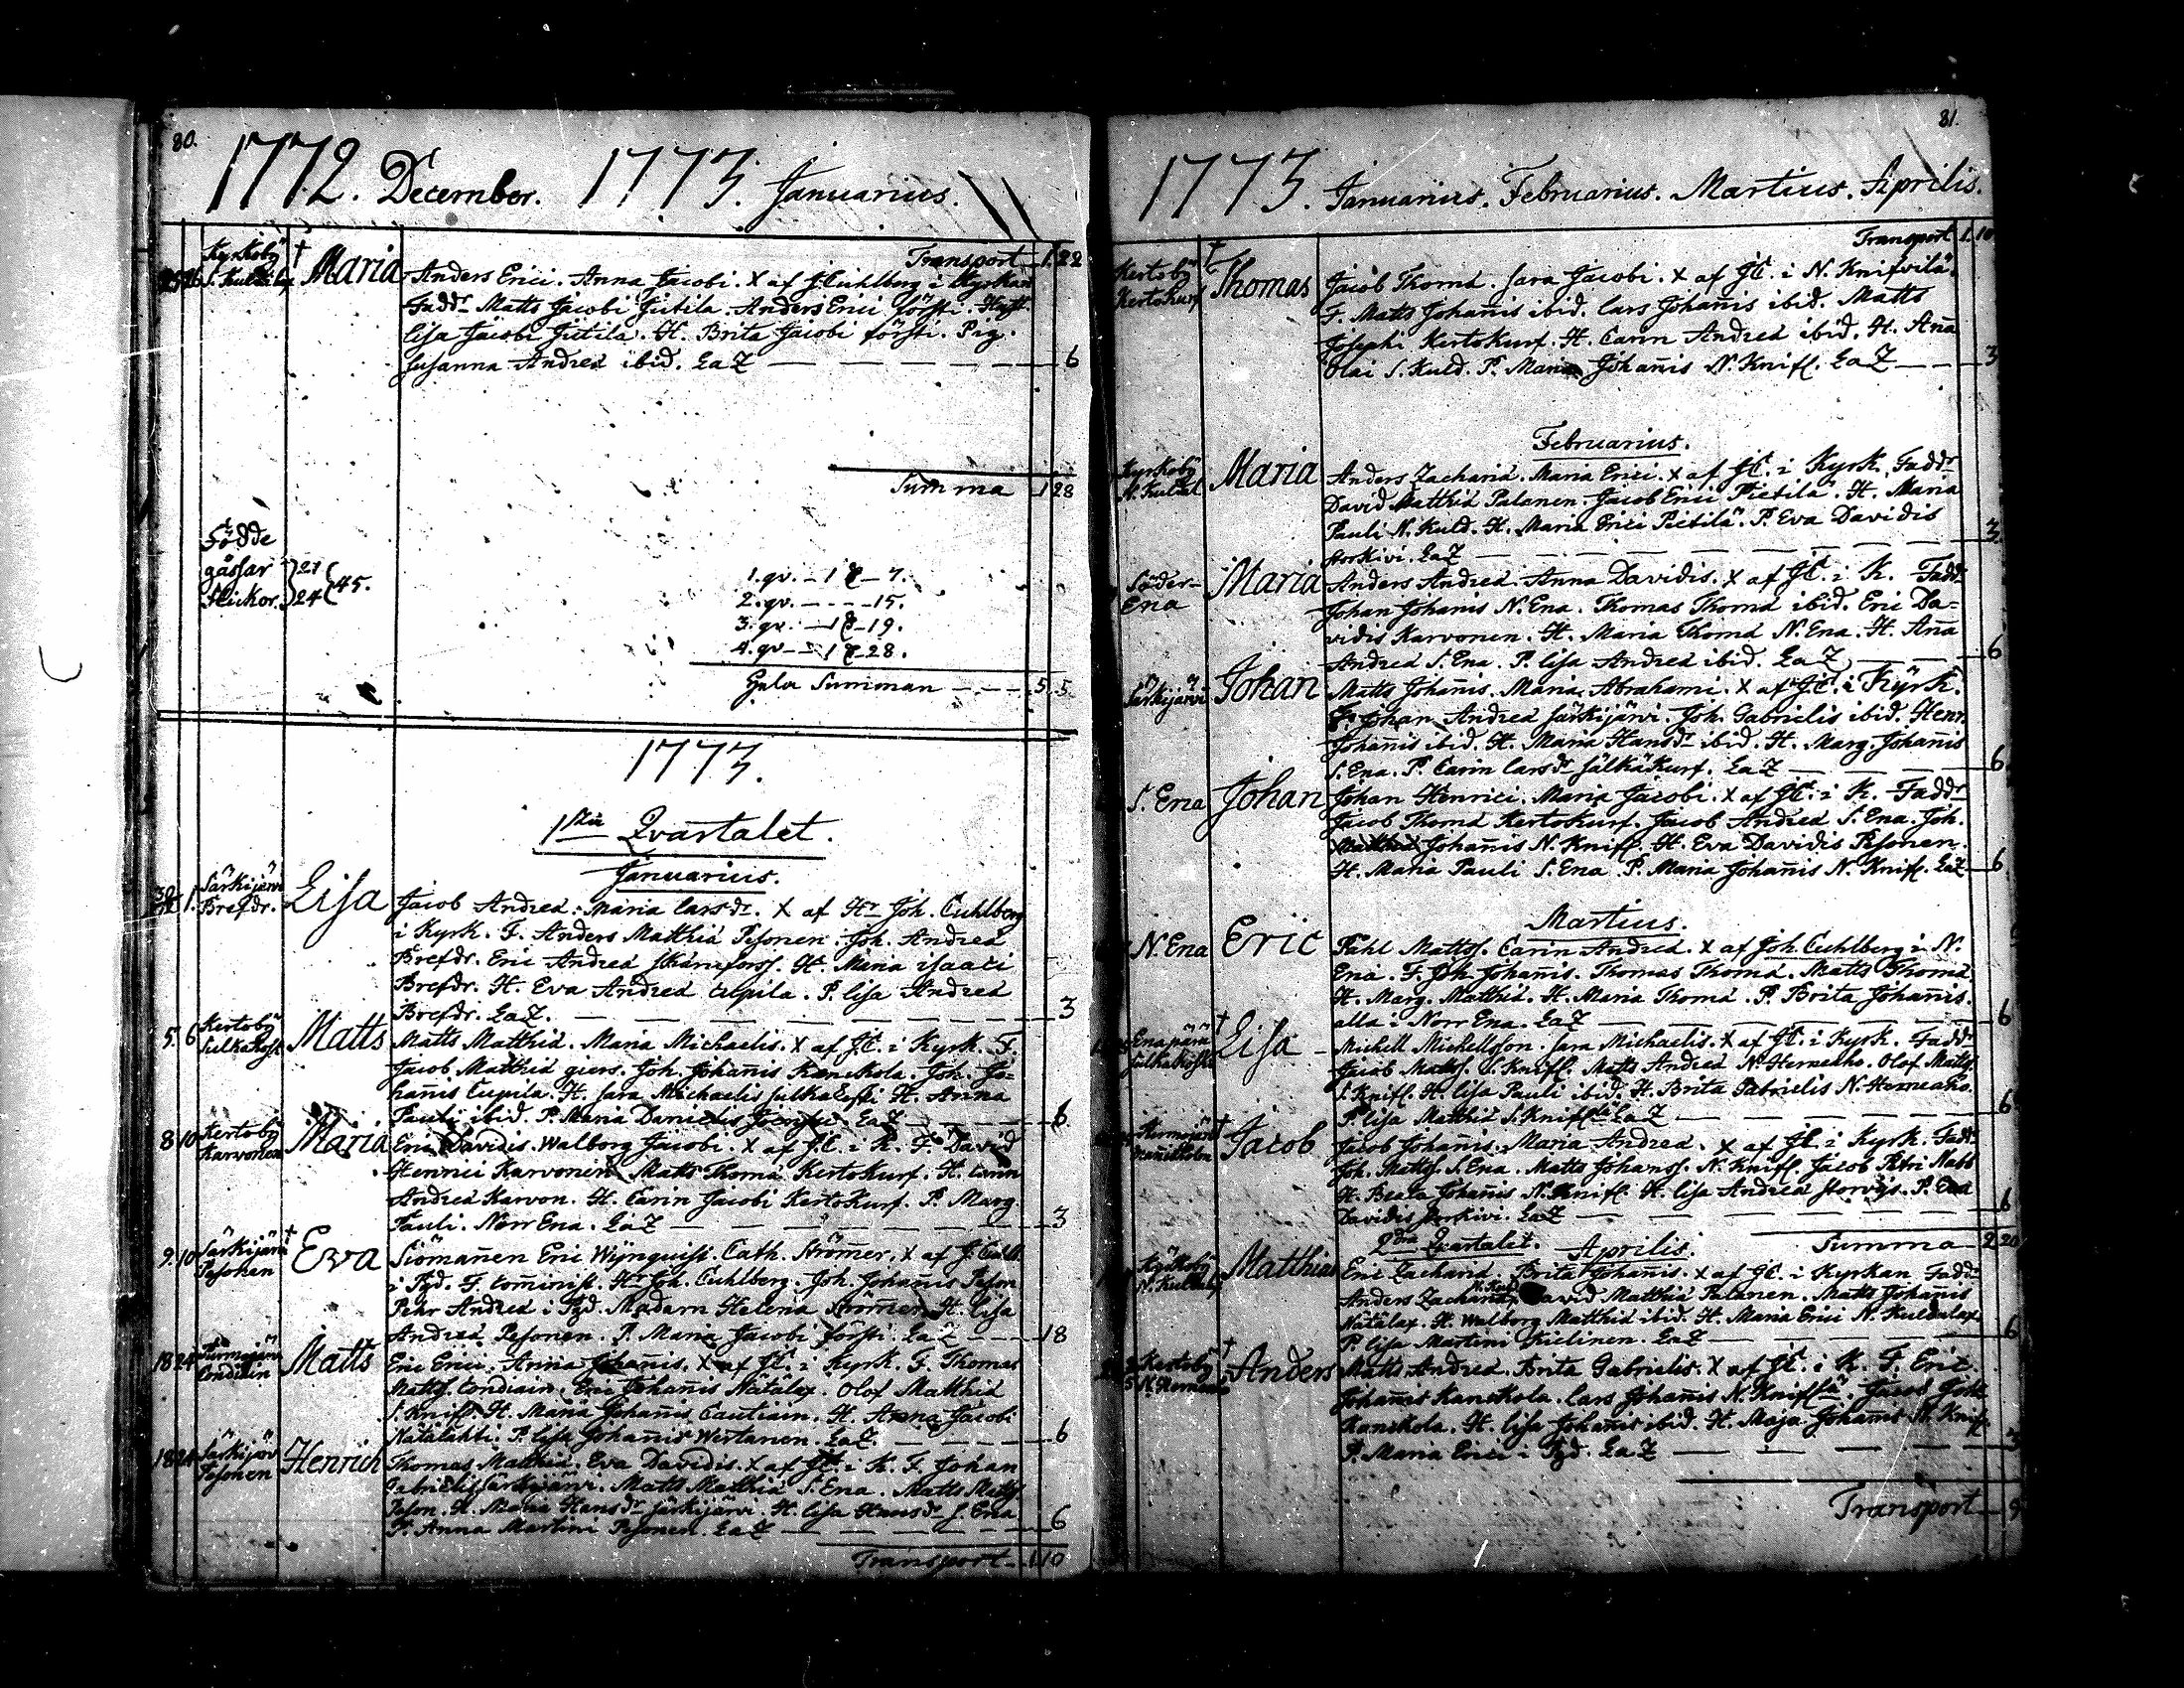 80.
1772. December. 1773. Januarius.
Transport 1. 22
Kyrkoby
S. Kuldalax † Maria Anders Erici. Anna Jacobi. X af J. Cuhlberg i Kyrkan
Faddr Matts Jacobi Jutila. Anders Erici försti.
Lisa Jacobi Jutila. H. Brita Jacobi försti. Pig.
Susanna Andreæ ibid. LaZ — 6
Summa 1 28
Födde
gåssar 21
flickor. 24 45.
1. qv. — 1 — 7.
2. qv. — — 15.
3. qv. — 1 — 19.
4. qv. — 1 — 28.
Hela Summan — 5. 5
1773.
1sta Qvartalet.
Januarius.
1. Särkijärvi
Brefdr. Lisa Jacob Andreæ. Maria Larsdr. X af Hr Joh. Cuhlberg
i Kyrk. F. Anders Matthiæ Pesonen. Joh. Andreæ
Brefdr. Eric Andreæ H. Maria isaaci
Brefdr. H. Eva Andreæ Cupila. P. Lisa Andreæ
Brefdr. LaZ. — 3
5. 6 Kertoby
Sulkakosk. Matts Matts Matthiæ. Maria Michaelis. X af JC. i Kyrk. F.
Jacob Matthiæ giers. Joh. Johañis Kanckola. Joh. Jo=
hañis Cupila. H. Sara Michaelis H. Anna
Pauli ibid. P. Maria Danielis LaZ — 6
8. 10 Kertoby
Karvonen Maria Eric Davidis. Walborg Jacobi. X af J.C. i K. F. David
Henrici Karvonen. Matts Thomæ Kertokurf. H. Carin
Andreæ Karvon. H. Carin Jacobi Kertokurf. P. Marg.
Pauli. Norr Ena. LaZ — 3
9. 10 Särkijärvi
Pesonen † Eva Siömañen Eric Wijnquist. Cath. Strömer. X af J. Cuhlb.
i Pgd. F. Hr Joh. Cuhlberg. Joh. Johañis Peson
Pehr Andreæ i Pgd. Madam Helena Strömer. H. Lisa
Andreæ Pesonen. P. Maria Jacobi försti. LaZ — 18
18. 24 Kurmojärv
Matts Eric Erici. Anna Johañis. X af JC. i Kyrk. F. Thomas
Mattss. Eric Johañis Nätälax. Olof Matthiæ
S. Knifl. H. Maria Johañis H. Anna Jacobi
Nätälahti. P. Lisa Johañis Wirtanen. LaZ. — 6
18. 24 Särkijärv
Pesonen Henrich Thomas Matthiæ. Eva Davidis. X af JC. i K. F. Johan
Gabrielis Särkijärvi. Matts Matthiæ S. Ena. Matts Mattss
Peson. H. Maria Hansdr Särkijärvi. H. Lisa Hansdr S. Ena
P. Anna Martini Pesonen. LaZ — 6
Transport 1. 10
81.
1773. Januarius. Februarius. Martius. Aprilis.
Transport 1. 10
Kertoby
Kertokurf † Thomas Jacob Thomæ. Sara Jacobi. X af JC. i N. Knifvilä.
F. Matts Johañis ibid. Lars Johañis ibid. Matts
Josephi Kertokurf. H. Carin Andreæ ibid. H. Aña
Olai S. Kuld. P. Maria Johañis N. Knifl. LaZ — 3
Februarius.
Kyrkoby
N. Kuldal Maria Anders Zachariæ. Maria Erici. X af JC. i Kyrk. Faddr
David Matthiæ Palanen. Jacob Erici Pietilä. H. Maria
Pauli N. Kuld. H. Maria Erici Pietilä. P. Eva Davidis
Storkivi. LaZ — 3.
Söder-
Ena Maria Anders Andreæ. Anna Davidis. X af JC. i K. Faddr
Johan Johañis N. Ena. Thomas Thomæ ibid. Eric Da=
vidis Karvonen. H. Maria Thomæ N. Ena. H. Aña
Andreæ S. Ena. P. Lisa Andreæ ibid. LaZ — 6
Särkijärvi Johan Matts Johañis. Maria Abrahami. X af JC. i Kyrk.
F. Johan Andreæ Särkijärvi. Joh. Gabrielis ibid. Henr.
Johañis ibid. H. Maria Hansdr ibid. H. Marg. Johañis
S. Ena. P. Carin Larsdr Sälkäkurf. LaZ — 6
S. Ena Johan Johan Henrici. Maria Jacobi. X af JC. i K. Faddr
Jacob Thomæ Kertokurf. Jacob Andreæ S. Ena. Joh.
Johañis N. Knifl. H. Eva Davidis Pesonen.
H. Maria Pauli S. Ena. P. Maria Johañis N. Knifl. LaZ — 6
Martius.
N. Ena Eric Påhl Mattss. Carin Andreæ. X af Joh. Cuhlberg i N.
Ena. F. Joh. Johañis. Thomas Thomæ. Matts Thomæ
H. Marg. Matthiæ. H. Maria Thomæ. P. Brita Johañis.
alla i Norr Ena. LaZ — 6
Enapärä
Sulkakoski † Lisa Michell Michellsson. Sara Michaelis. X af JC. i Kyrk. Faddr
Jacob Mattss. S. Knifl. Matts Andreæ N. Hernesho. Olof Mattss.
S. Knifl. H. Lisa Pauli ibid. H. Brita Gabrielis N. Hernesho.
P. Lisa Matthiæ S. Kniflä LaZ — 6
Kurmojärv
† Jacob Jacob Johañis. Maria Andreæ. X af JC i Kyrk. Faddr
Joh. Mattss. S. Ena. Matts Johanss. N. Knifl. Jacob Petri Nabb
H. Beata Johañis N. Knifl. H. Lisa Andreæ P. Eva
Davidis Storkivi. LaZ — 6
2dra Qvartalet. Aprilis. Summa 2. 20
Kyrkoby
N. Kuldalax Matthias Eric Zachariæ. Brita Johañis. X af JC. i Kyrkan Faddr
Anders Zachariæ N. Kuld. David Matthiæ Palanen. Matts Johañis
Nätälax. H. Walborg Matthiæ ibid. H. Maria Erici N. Kuldalax.
P. Lisa Martini Kielinen. LaZ — 6
Kertoby
N. Hernesho † Anders Matts Andreæ. Brita Gabrielis. X af JC. i K. F. Eric
Johañis Kanckola. Lars Johañis N. Kniflä. Jacob Joh.
Kanckola. H. Lisa Johañis ibid. H. Maja Johañis N. Knif.
P. Maria Erici i Pgd. LaZ — 3
Transport 9